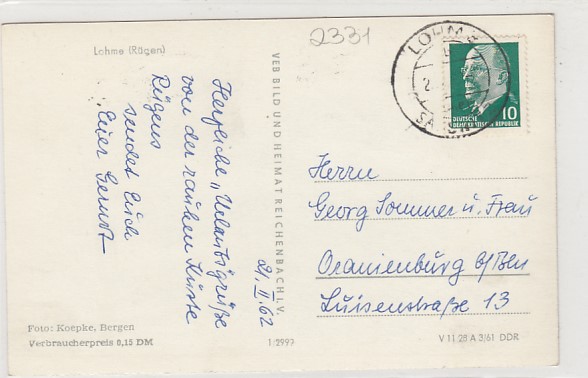 2331
Lohme (Rügen)
Herzliche „Urlaubsgrüße
von der rauhen Küste
Rügens
sendet Euch
Euer Gernot
21/II.62
VEB BILD UND HEIMAT REICHENBACH I. V.
LOHME
SA
10
DEUTSCHE
DEMOKRATISCHE REPUBLIK
Herrn
Georg Sommer u. Frau
Oranienburg b/Bln
Luisenstraße 13
Foto: Koepke, Bergen
Verbraucherpreis 0,15 DM
1/2993
V 11 28 A 3/61 DDR